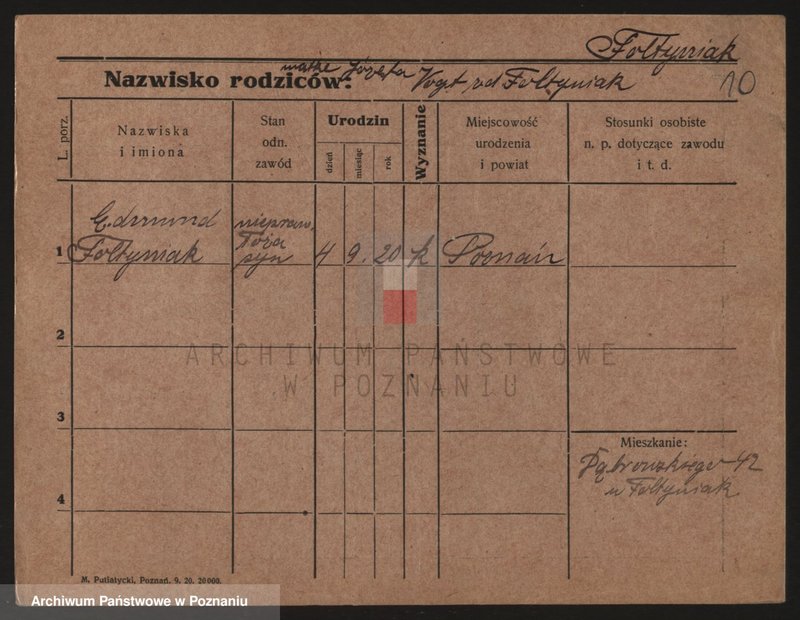 Fołtyniak
matka Józefa Vogt, zd Fołtyniak
Nazwisko rodziców:
10
L. porz.
Nazwiska
i imiona
Stan
odn.
zawód
Urodzin
dzień
miesiąc
rok
Wyznanie
Miejscowość
urodzenia
i powiat
Stosunki osobiste
n. p. dotyczące zawodu
i t. d.
1
Edmund
Fołtyniak
niepraw.
syn
4
9.
20
k
Poznań
2
ARCHIWUM PAŃSTWOWE
W POZNANIU
3
Mieszkanie:
Dąbrowskiego 42
u Fołtyniak
4
M. Putiatycki, Poznań. 9. 20. 20000.
Archiwum Państwowe w Poznaniu